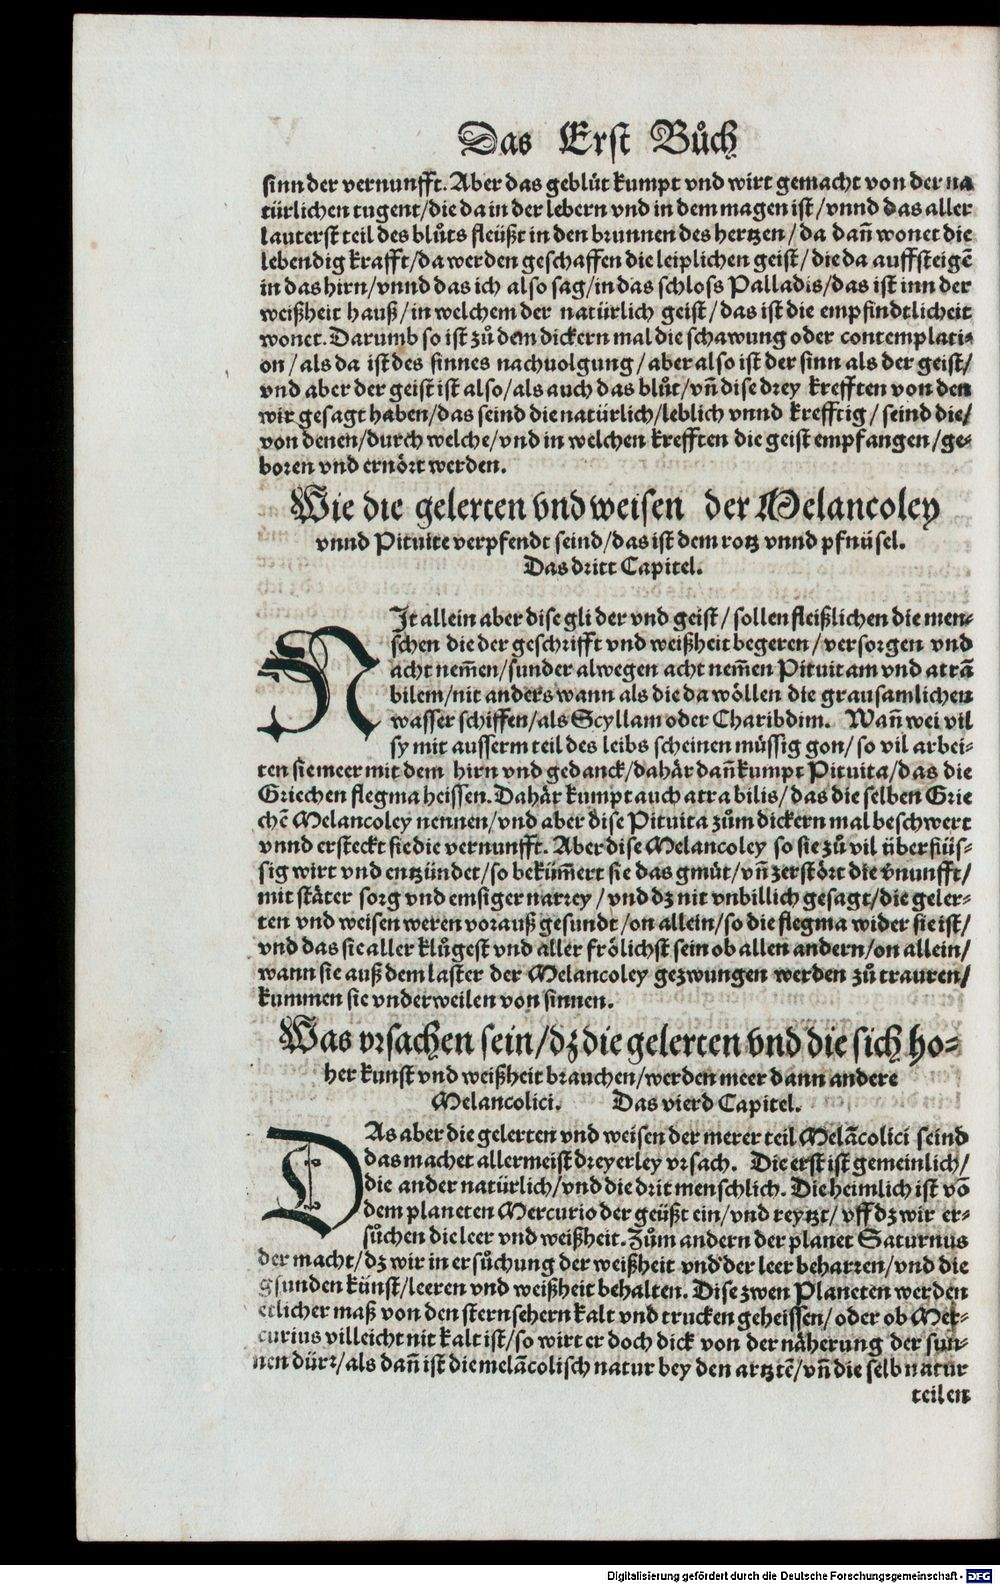 Das Erst Bůch
sinn der vernunfft. Aber das geblüt kumpt vnd wirt gemacht von der na
türlichen tugent/die da in der lebern vnd in dem magen ist/vnnd das aller
lauterst teil des blůts fleüßt in den brunnen des hertzen/da dañ wonet die
lebendig krafft/da werden geschaffen die leiplichen geist/die da auffsteigẽ
in das hirn/vnnd das ich also sag/in das schloss Palladis/das ist inn der
weißheit hauß/in welchem der natürlich geist/das ist die empfindtlicheit
wonet. Darumb so ist zů dem dickern mal die schawung oder contemplati⸗
on/als da ist des sinnes nachuolgung/aber also ist der sinn als der geist/
vnd aber der geist ist also/als auch das blůt/vñ dise drey krefften von den
wir gesagt haben/das seind die natürlich/leblich vnnd krefftig/seind die/
von denen/durch welche/vnd in welchen krefften die geist empfangen/ge⸗
boren vnd ernört werden.
Wie die gelerten vnd weisen der Melancoley
vnnd Pituite verpfendt seind/das ist dem rotz vnnd pfnüsel.
Das dritt Capitel.
NJt allein aber dise glider vnd geist/sollen fleißlichen die men⸗
schen die der geschrifft vnd weißheit begeren/versorgen vnd
acht nem̃en/sunder alwegen acht nem̃en Pituitam vnd atrã
bilem/nit anders wann als die da wöllen die grausamlichen
wasser schiffen/als Scyllam oder Charibdim. Wañ wei vil
sy mit ausserm teil des leibs scheinen müssig gon/so vil arbei⸗
ten sie meer mit dem hirn vnd gedanck/dahär dañ kumpt Pituita/das die
Griechen flegma heissen. Dahär kumpt auch atra bilis/das die selben Grie
chẽ Melancoley nennen/vnd aber dise Pituita zům dickern mal beschwert
vnnd ersteckt sie die vernunfft. Aber dise Melancoley so sie zů vil überflüs⸗
sig wirt vnd entzündet/so beküm̃ert sie das gmüt/vñ zerstört die v̉nunfft/
mit stäter sorg vnd emsiger narrey/vnd dz nit vnbillich gesagt/die geler⸗
ten vnd weisen weren vorauß gesundt/on allein/so die flegma wider sie ist/
vnd das sie aller klůgest vnd aller frölichst sein ob allen andern/on allein/
wann sie auß dem laster der Melancoley gezwungen werden zů trauren/
kummen sie vnderweilen von sinnen.
Was vrsachen sein/dz die gelerten vnd die sich ho⸗
her kunst vnd weißheit brauchen/werden meer dann andere
Melancolici. Das vierd Capitel.
DAs aber die gelerten vnd weisen der merer teil Melãcolici seind
das machet allermeist dreyerley vrsach. Die erst ist gemeinlich/
die ander natürlich/vnd die drit menschlich. Die heimlich ist võ
dem planeten Mercurio der geüßt ein/vnd reytzt/vff dz wir er⸗
sůchen die leer vnd weißheit. Zům andern der planet Saturnus
der macht/dz wir in ersůchung der weißheit vnd der leer beharren/vnd die
gsunden künst/leeren vnd weißheit behalten. Dise zwen Planeten werden
etlicher maß von den sternsehern kalt vnd trucken geheissen/oder ob Mer⸗
curius villeicht nit kalt ist/so wirt er doch dick von der näherung der sun⸗
nen dürr/als dañ ist die melãcolisch natur bey den artztẽ/vñ die selb natur
teilen
Digitalisierung gefördert durch die Deutsche Forschungsgemeinschaft - DFG